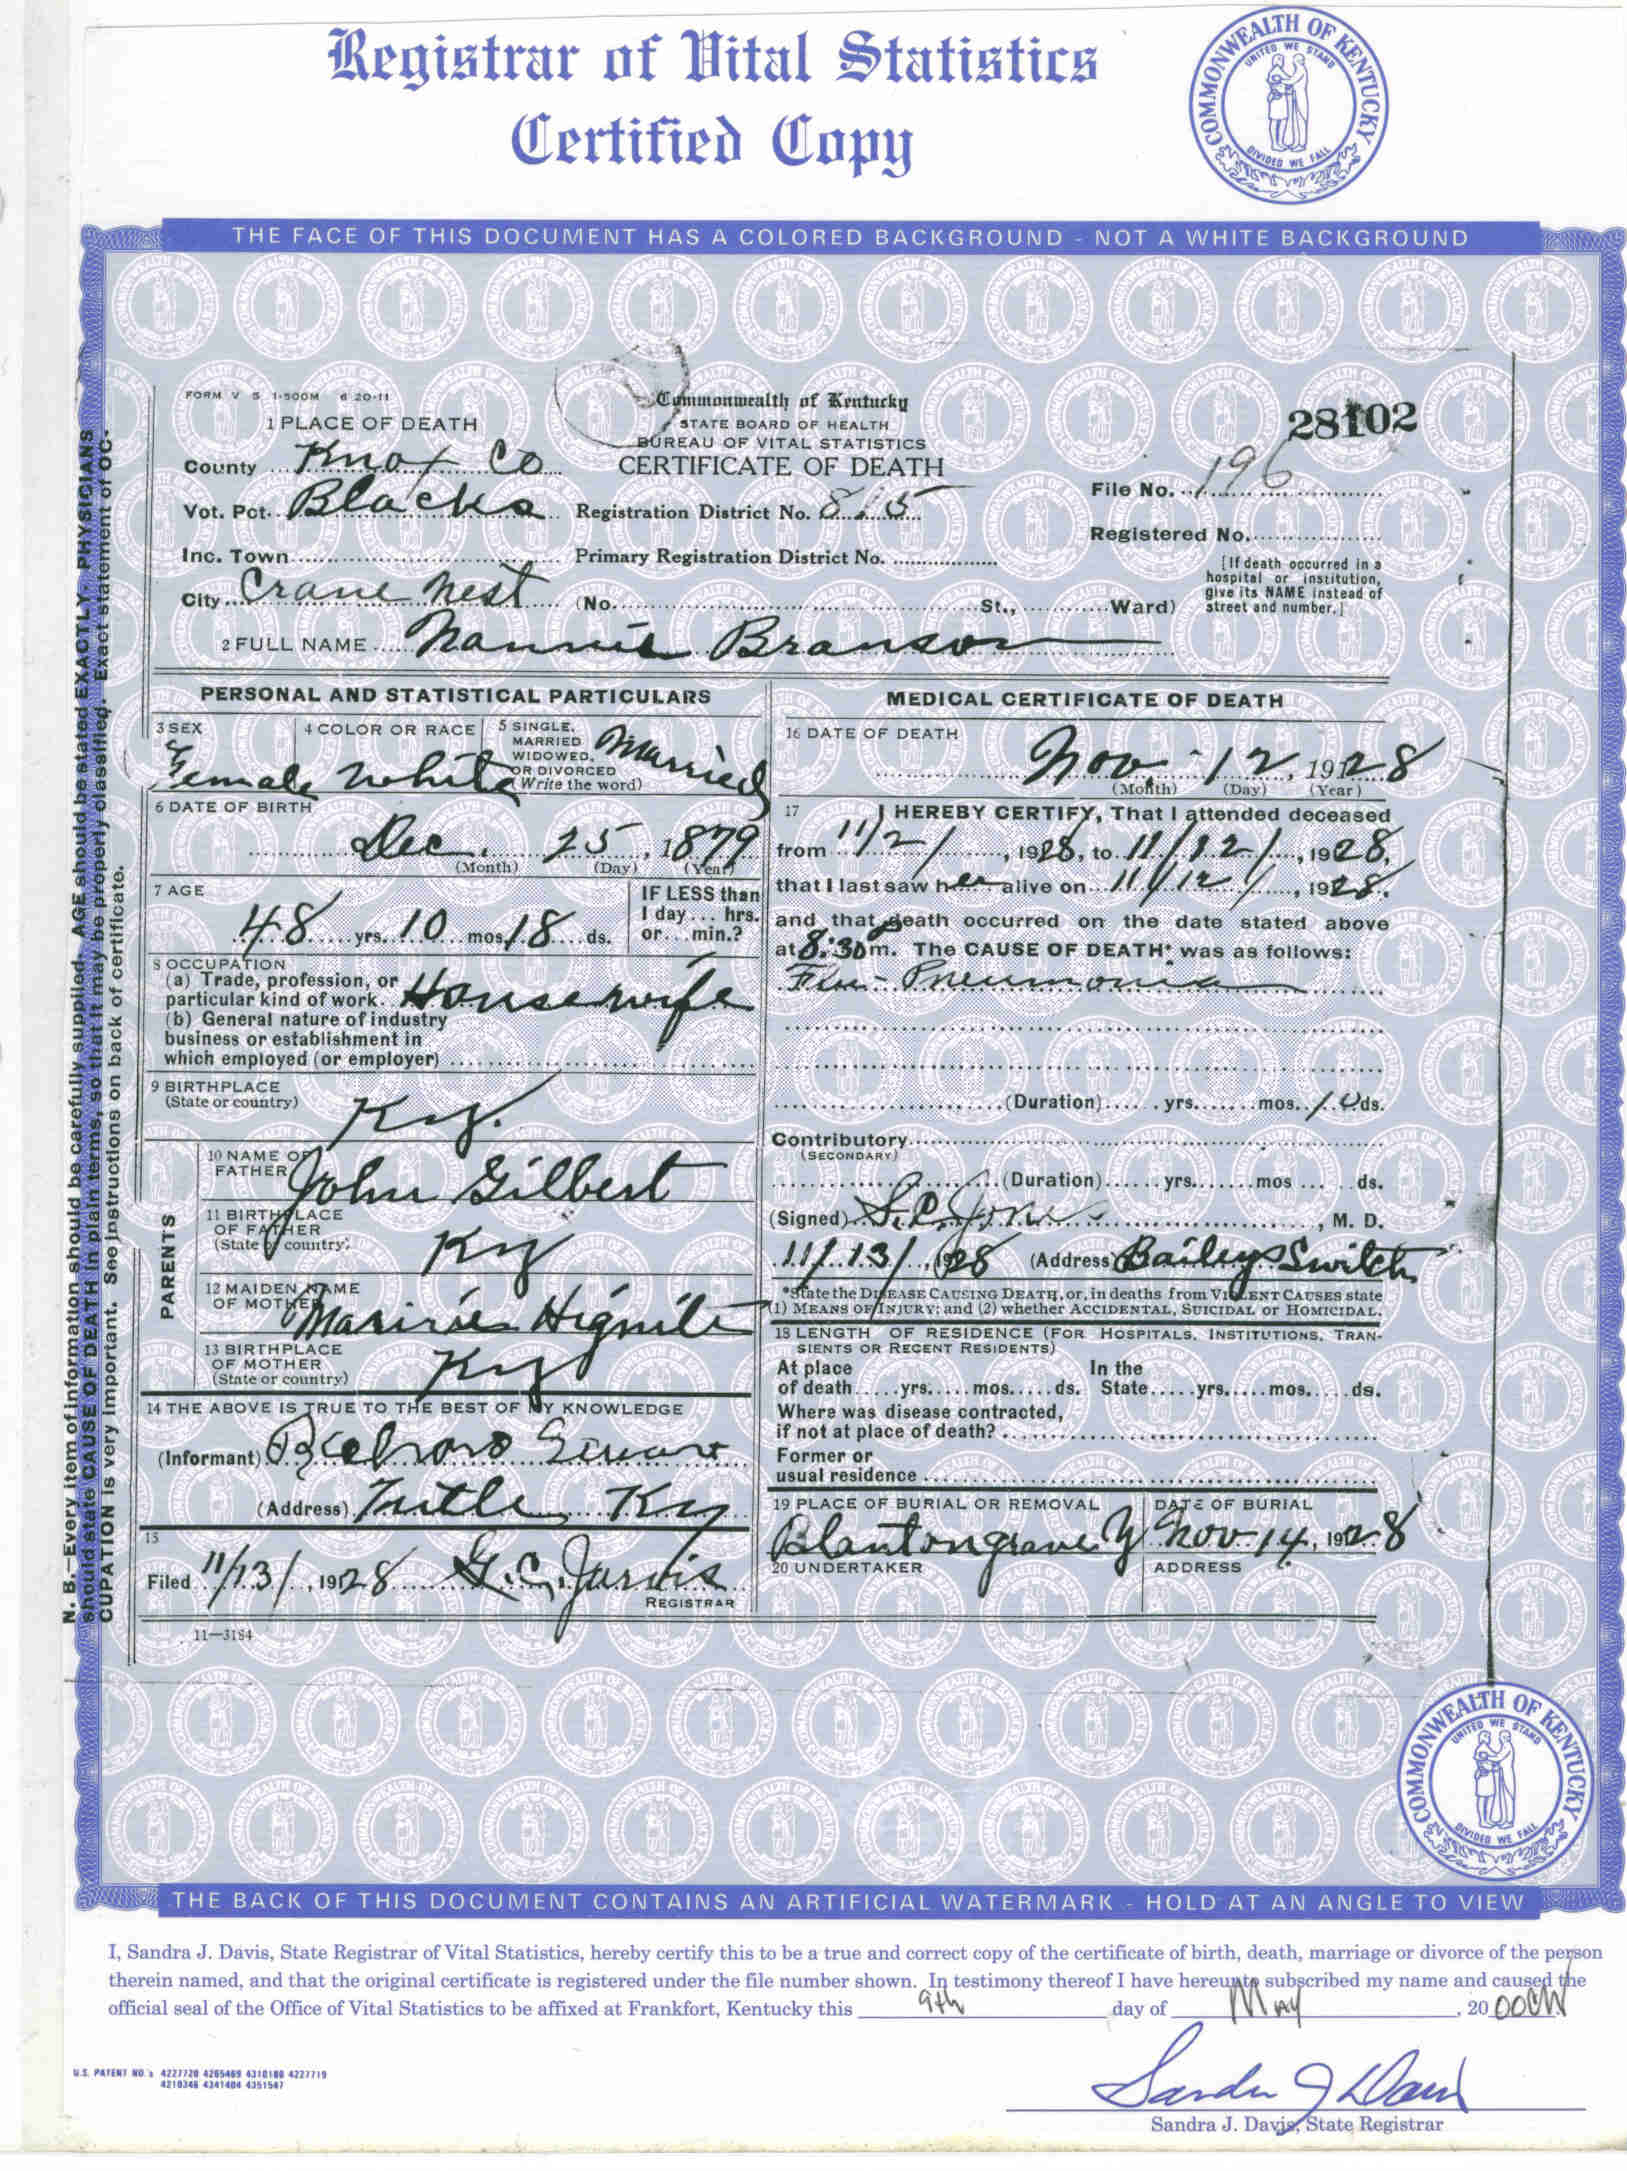 Registrar of Vital Statistics
Certified Copy
COMMONWEALTH OF KENTUCKY
UNITED WE STAND
DIVIDED WE FALL
THE FACE OF THIS DOCUMENT HAS A COLORED BACKGROUND - NOT A WHITE BACKGROUND
FORM V S 1-500M 6 20-11
Commonwealth of Kentucky
STATE BOARD OF HEALTH
BUREAU OF VITAL STATISTICS
CERTIFICATE OF DEATH
28102
1 PLACE OF DEATH
County Knox Co
File No. 196
Vot. Pct. Blacks Registration District No. 815
Registered No.
Inc. Town Primary Registration District No.
[If death occurred in a
hospital or institution,
give its NAME instead of
street and number.]
City Crane Nest (No. St., Ward)
2 FULL NAME Nannie Branson
PERSONAL AND STATISTICAL PARTICULARS
3 SEX
Female
4 COLOR OR RACE
White
5 SINGLE,
MARRIED
WIDOWED,
OR DIVORCED
(Write the word)
Married
6 DATE OF BIRTH
Dec. 25, 1879
(Month) (Day) (Year)
7 AGE
48 yrs. 10 mos. 18 ds.
IF LESS than
1 day... hrs.
or... min.?
8 OCCUPATION
(a) Trade, profession, or
particular kind of work. Housewife
(b) General nature of industry
business or establishment in
which employed (or employer)
9 BIRTHPLACE
(State or country)
Ky.
PARENTS
10 NAME OF
FATHER John Gilbert
11 BIRTHPLACE
OF FATHER
(State or country)
Ky
12 MAIDEN NAME
OF MOTHER
Hignite
13 BIRTHPLACE
OF MOTHER
(State or country)
Ky
14 THE ABOVE IS TRUE TO THE BEST OF MY KNOWLEDGE
(Informant)
(Address) Tuttle Ky
15
Filed 11/13/, 1928 G.C. Jarvis
REGISTRAR
11-3184
MEDICAL CERTIFICATE OF DEATH
16 DATE OF DEATH
Nov. - 12, 1928
(Month) (Day) (Year)
17 I HEREBY CERTIFY, That I attended deceased
from 11/2/, 1928, to 11/12/, 1928,
that I last saw her alive on 11/12/, 1928,
and that death occurred on the date stated above
at 8:30 m. The CAUSE OF DEATH* was as follows:
Flu - Pneumonia
(Duration) yrs. mos. 10 ds.
Contributory
(SECONDARY)
(Duration) yrs. mos ds.
(Signed) Jones, M. D.
11/13/, 1928 (Address) Baileys Switch
*State the DISEASE CAUSING DEATH, or, in deaths from VIOLENT CAUSES state
(1) MEANS OF INJURY; and (2) whether ACCIDENTAL, SUICIDAL or HOMICIDAL.
18 LENGTH OF RESIDENCE (FOR HOSPITALS, INSTITUTIONS, TRAN-
SIENTS OR RECENT RESIDENTS)
At place In the
of death yrs. mos. ds. State yrs. mos. ds.
Where was disease contracted,
if not at place of death?
Former or
usual residence
19 PLACE OF BURIAL OR REMOVAL
Blanton grave Y
DATE OF BURIAL
Nov. 14, 1928
20 UNDERTAKER
ADDRESS
N. B.—Every item of information should be carefully supplied. AGE should be stated EXACTLY. PHYSICIANS
should state CAUSE OF DEATH in plain terms, so that it may be properly classified. Exact statement of OC-
CUPATION is very important. See instructions on back of certificate.
COMMONWEALTH OF KENTUCKY
UNITED WE STAND
DIVIDED WE FALL
THE BACK OF THIS DOCUMENT CONTAINS AN ARTIFICIAL WATERMARK - HOLD AT AN ANGLE TO VIEW
I, Sandra J. Davis, State Registrar of Vital Statistics, hereby certify this to be a true and correct copy of the certificate of birth, death, marriage or divorce of the person
therein named, and that the original certificate is registered under the file number shown. In testimony thereof I have hereunto subscribed my name and caused the
official seal of the Office of Vital Statistics to be affixed at Frankfort, Kentucky this 9th day of May, 2000
U.S. PATENT NO.'s 4227720 4265469 4310180 4227719
4210346 4341404 4351547
Sandra J Davis
Sandra J. Davis, State Registrar